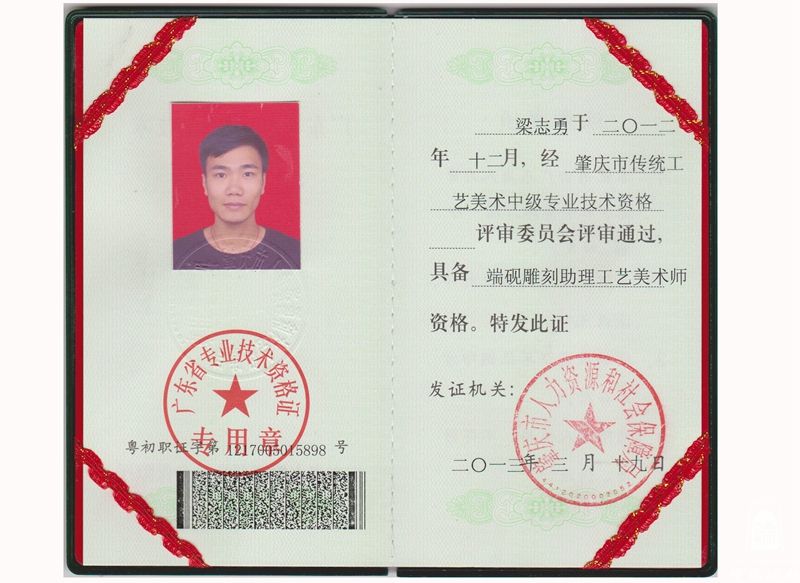 广东省专业技术资格证
专用章
粤初职证字第 1217005015898 号
梁志勇于 二〇一二
年 十二月，经 肇庆市传统工
艺美术中级专业技术资格
评审委员会评审通过，
具备 端砚雕刻助理工艺美术师
资格。特发此证
发证机关：
肇庆市人力资源和社会保障局
二〇一三年 三 月 十九日